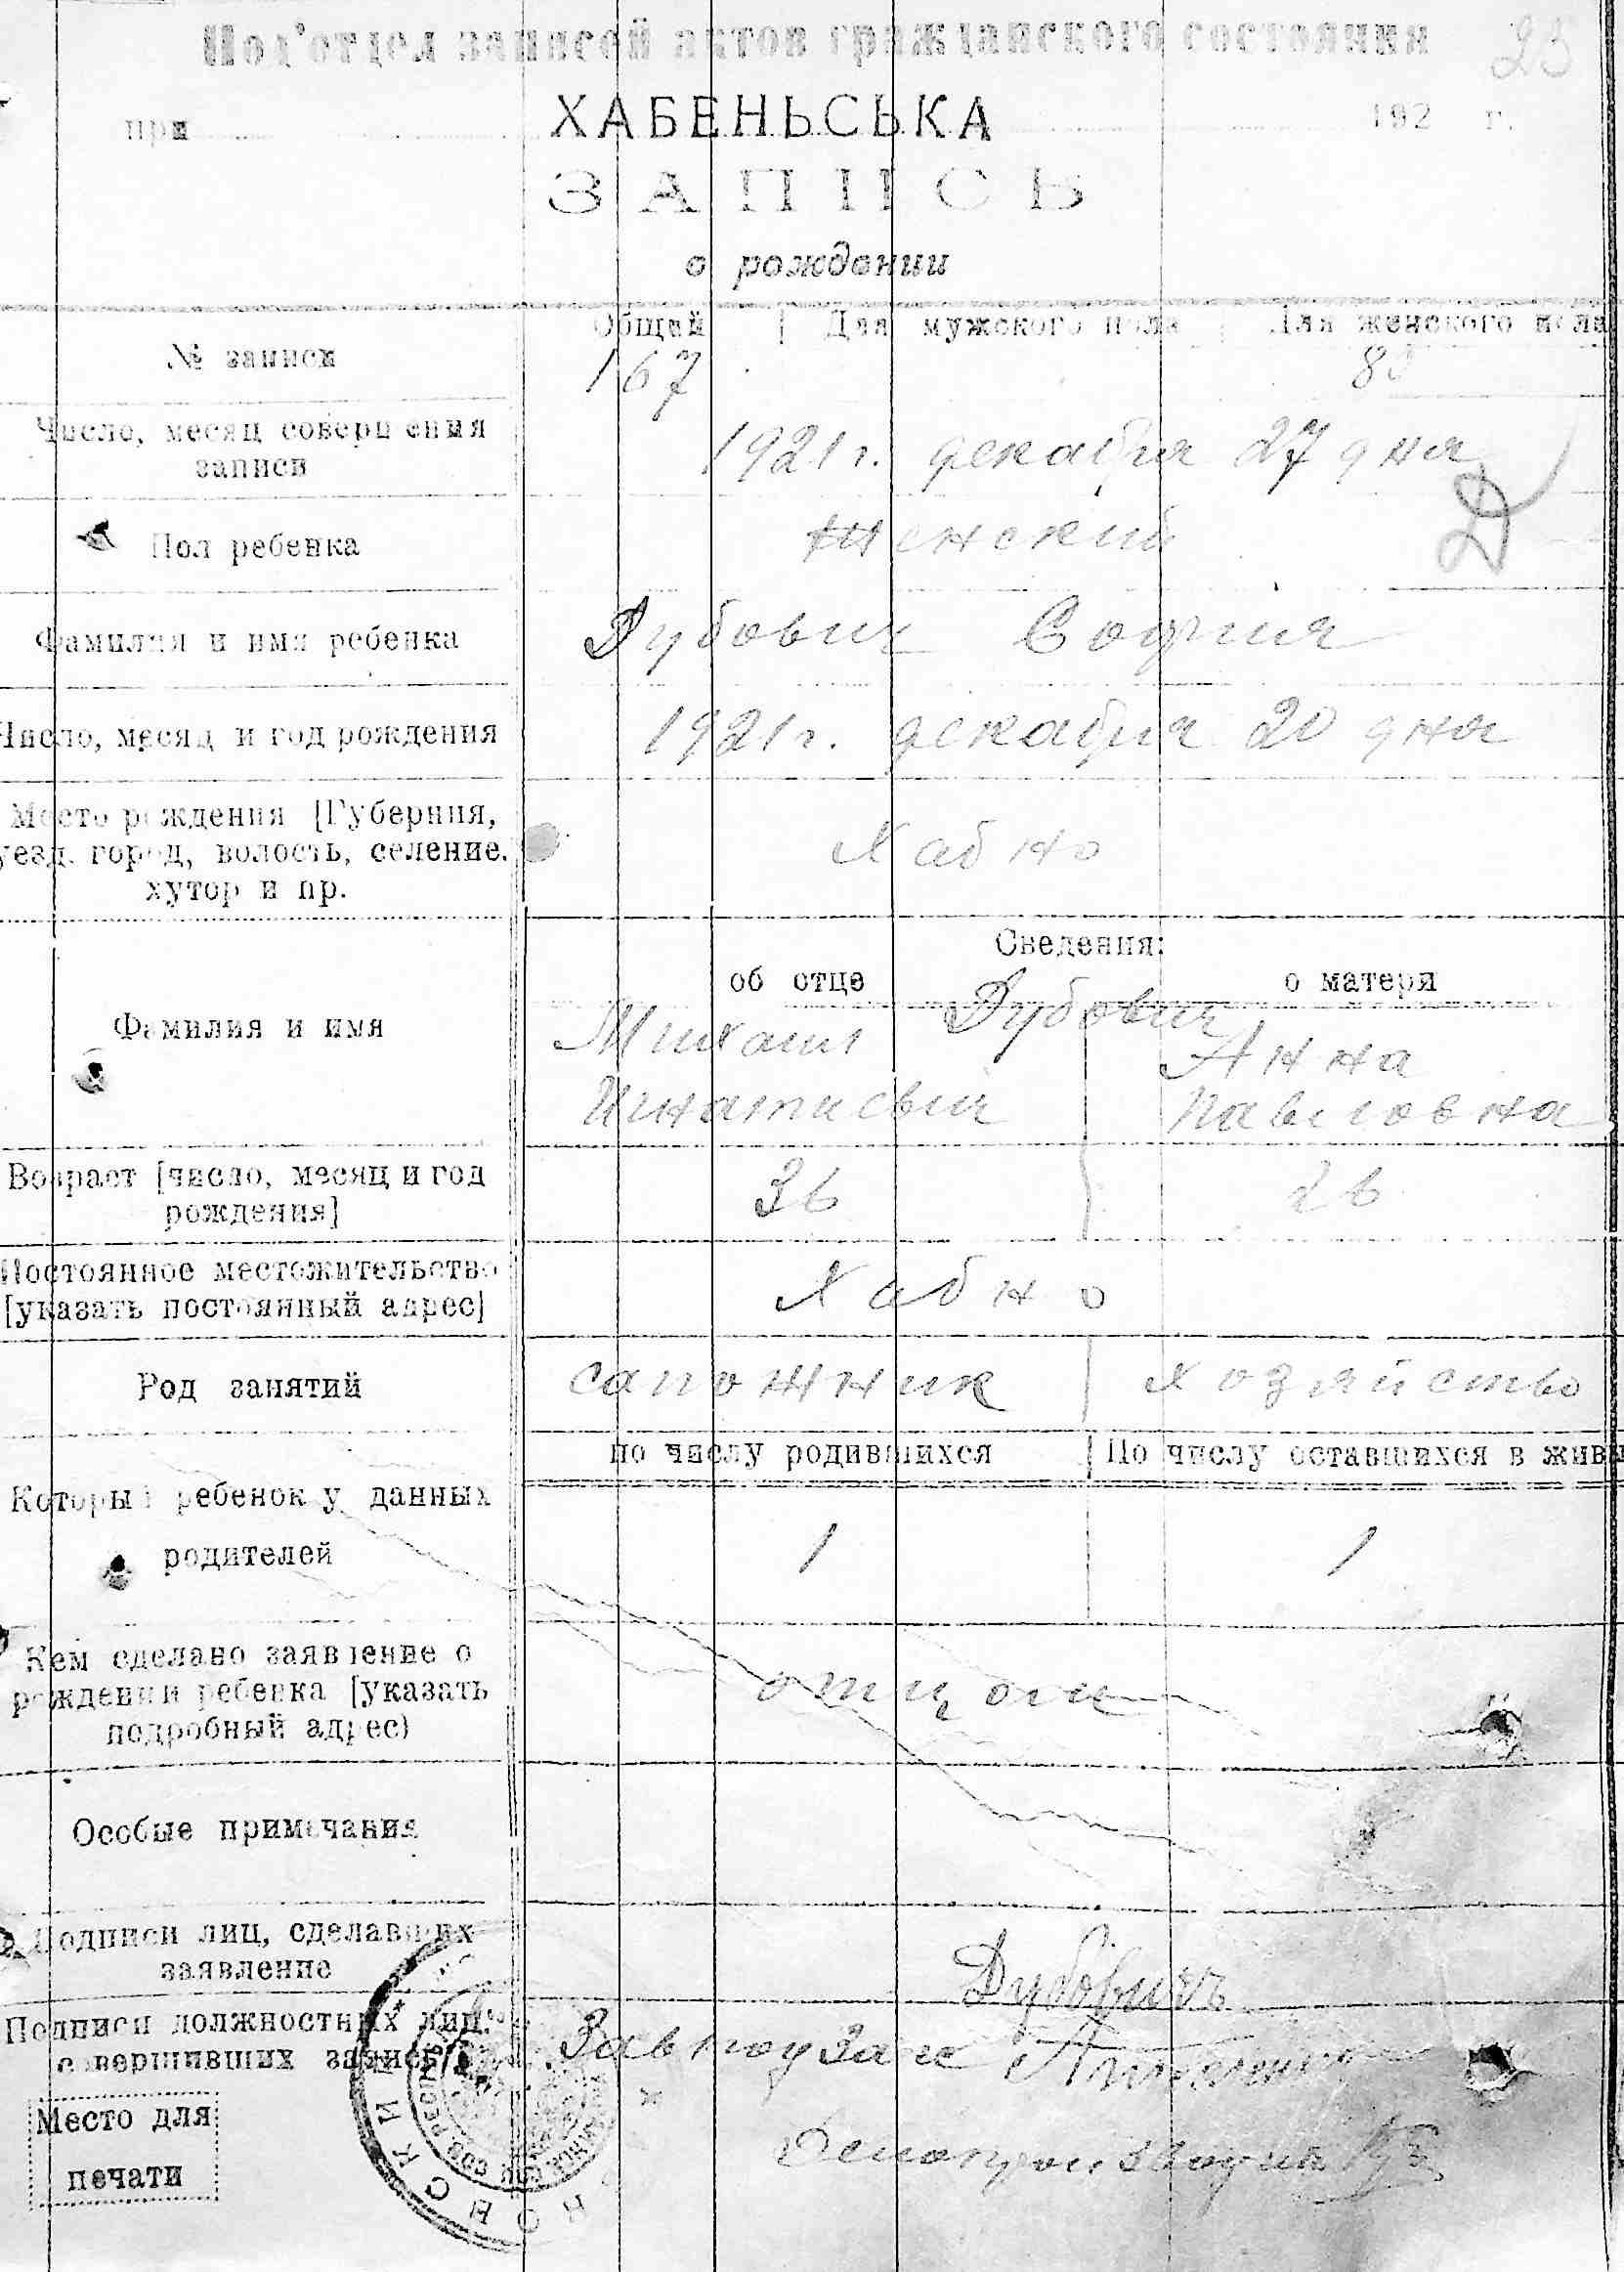 Под'отдел записей актов гражданского состояния 25
при ХАБЕНЬСЬКА 192 г.
ЗАПИСЬ
о рождении
Общий Для мужского пола Для женского пола
№ записи 167
Число, месяц совершения записи
1921 г. декабря 27 дня
Д
Пол ребенка женский
Фамилия и имя ребенка Дубович София
Число, месяц и год рождения 1921 г. декабря 20 дня
Место рождения [Губерния,
уезд. город, волость, селение.
хутор и пр.
Хабно
Сведения:
об отце о матери
Фамилия и имя
Дубович
Михаил Анна
Игнатиевич Павловна
Возраст [число, месяц и год
рождения]
36 26
Постоянное местожительство
[указать постоянный адрес]
Хабно
Род занятий сапожник хозяйство
по числу родившихся По числу оставшихся в жив
Который ребенок у данных
родителей
1 1
Кем сделано заявление о
рождении ребенка [указать
подробный адрес)
отцом
Особые примечания
Подписи лиц, сделавших
заявление
Дубовичъ
Подписи должностных лиц,
совершивших запись
Завподзаг
Делопроизводит
Место для
печати